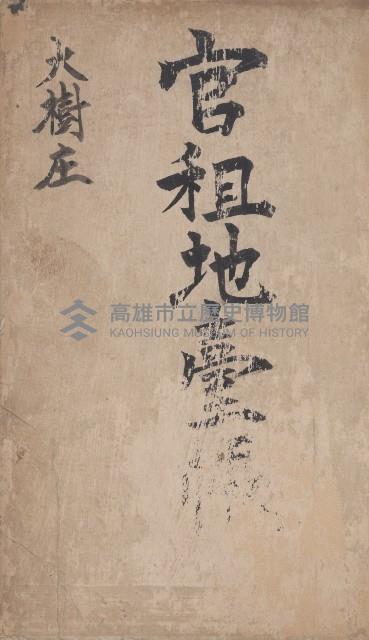 官租地臺帳
大樹庄
高雄市立歷史博物館
KAOHSIUNG MUSEUM OF HISTORY